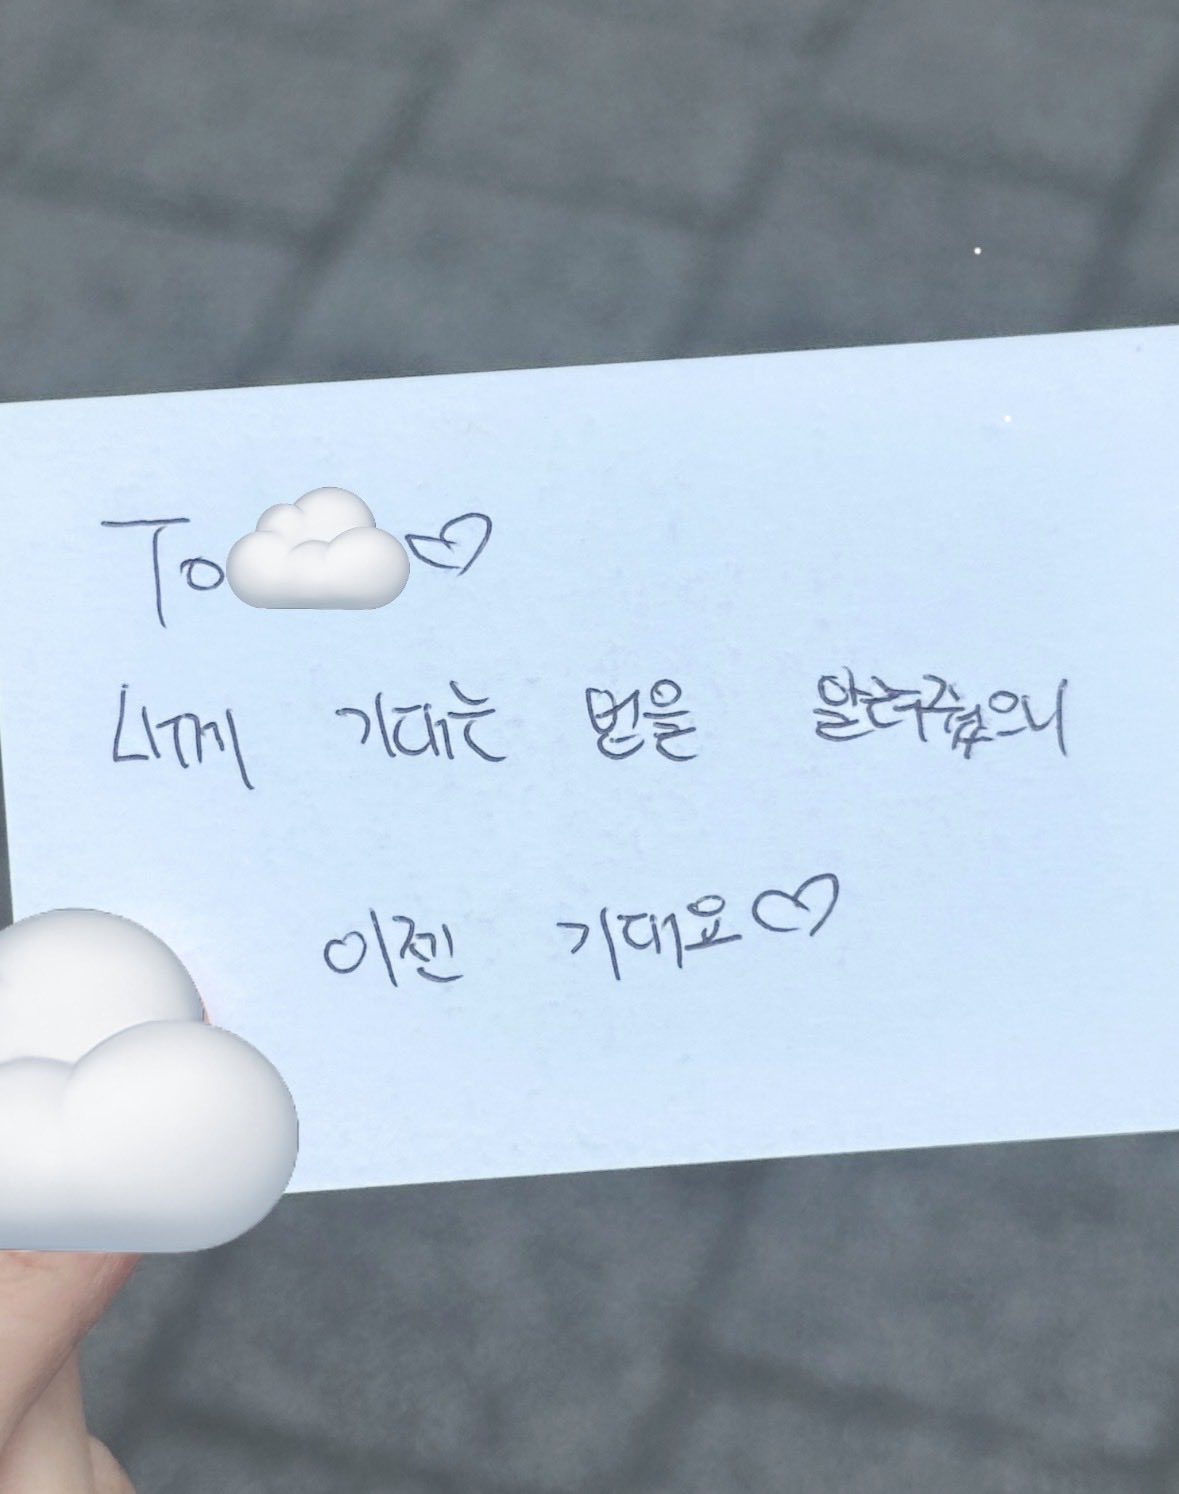 To ♡
나께 기대는 법을 알려주셨으니
이젠 기대요♡